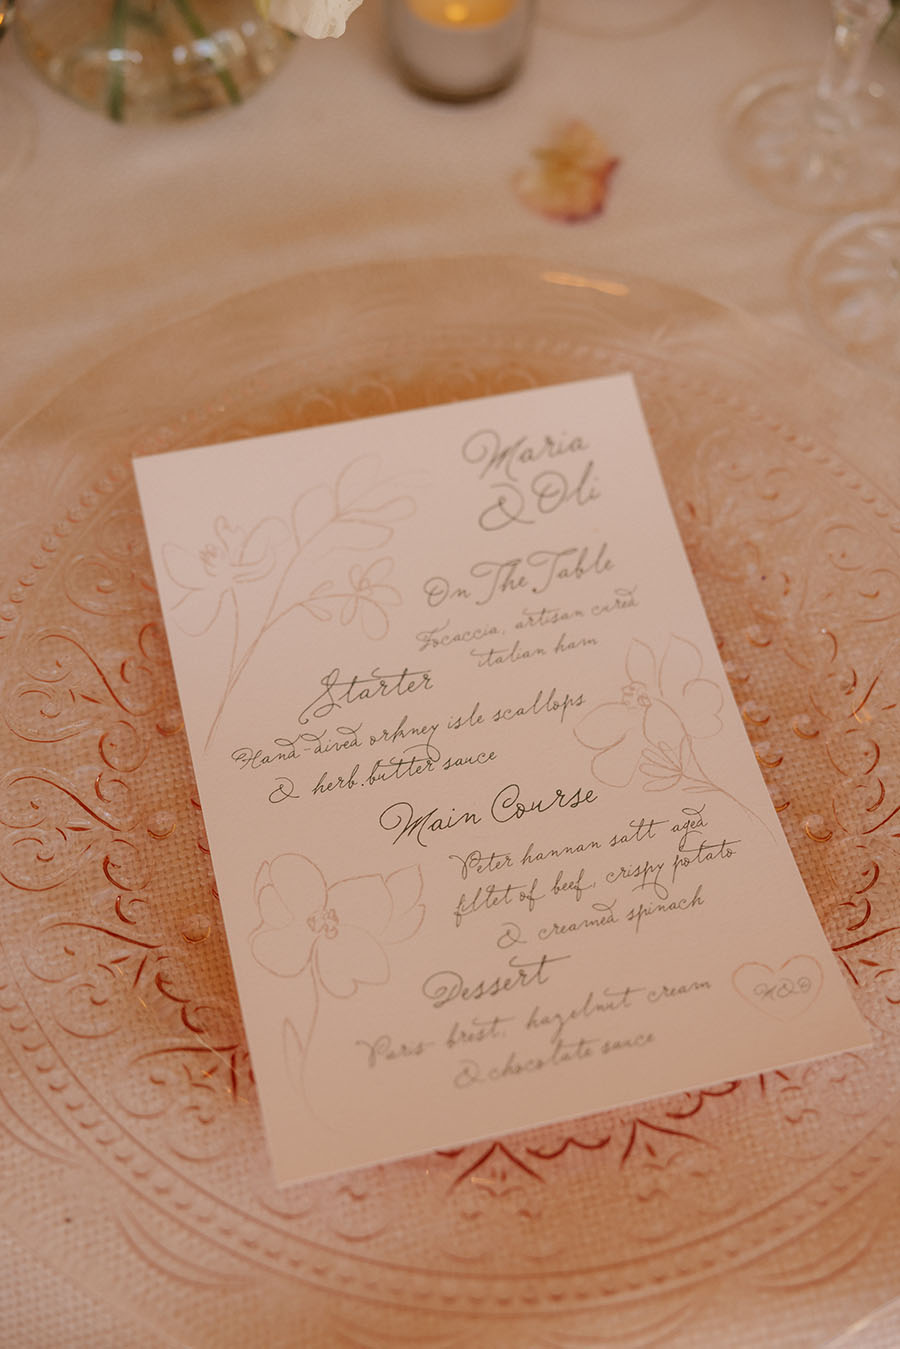 Maria
& Oli
On The Table
Focaccia, artisan cured
italian ham
Starter
Hand-dived orkney isle scallops
& herb butter sauce
Main Course
Peter hannan salt aged
fillet of beef, crispy potato
& creamed spinach
Dessert
Paris-brest, hazelnut cream
& chocolate sauce
M&O